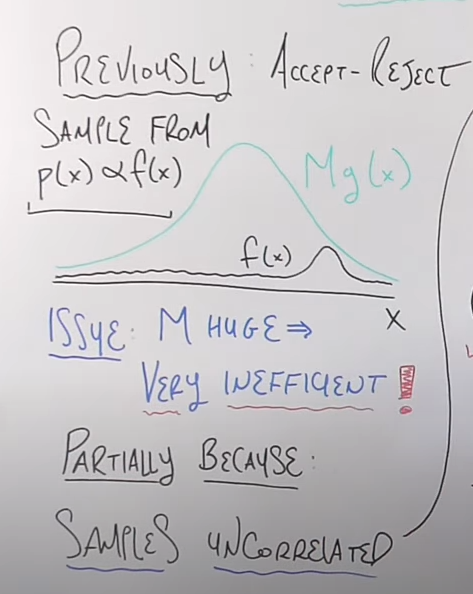 PREVIOUSLY: ACCEPT-REJECT
SAMPLE FROM
p(x) ∝ f(x)
Mg(x)
f(x)
X
ISSUE: M HUGE ⇒
VERY INEFFICIENT!
PARTIALLY BECAUSE:
SAMPLES UNCORRELATED